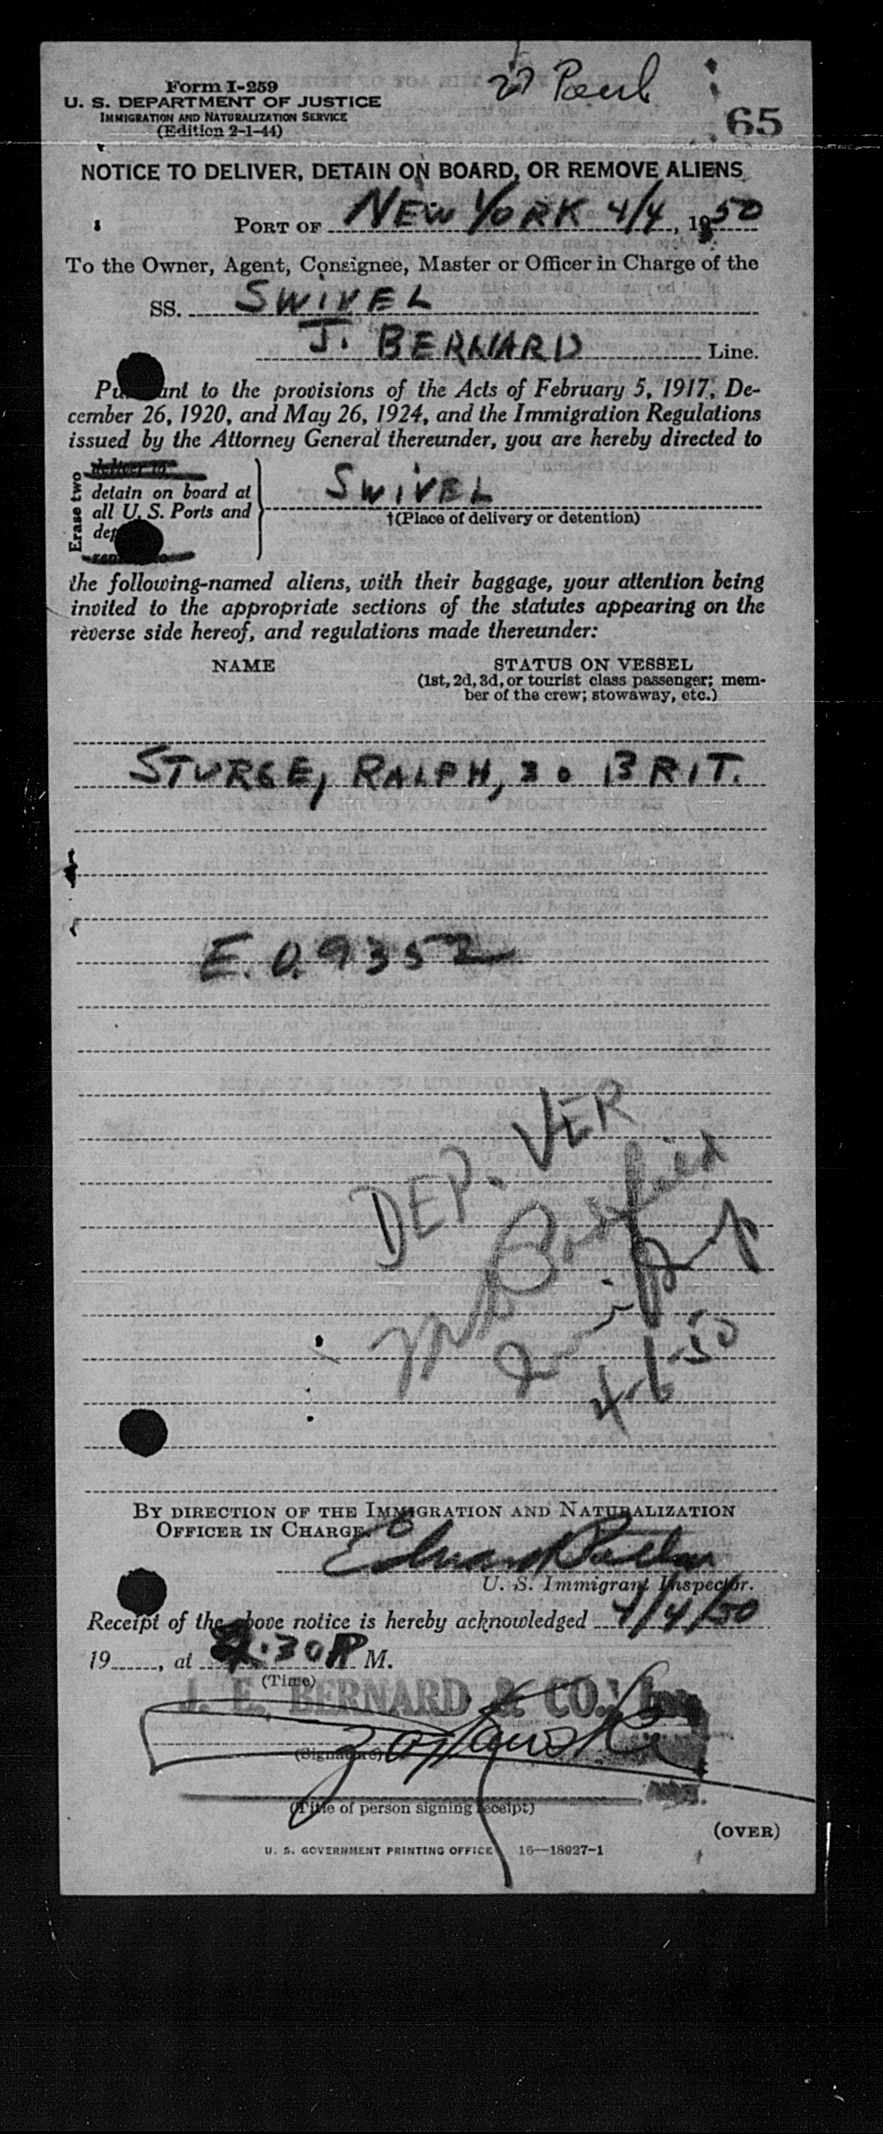 Form I-259
U. S. DEPARTMENT OF JUSTICE
IMMIGRATION AND NATURALIZATION SERVICE
(Edition 2-1-44)
65
NOTICE TO DELIVER, DETAIN ON BOARD, OR REMOVE ALIENS
PORT OF NEW YORK 4/4, 1950
To the Owner, Agent, Consignee, Master or Officer in Charge of the
SS. SWIVEL
J. BERNARD Line.
to the provisions of the Acts of February 5, 1917, De-
cember 26, 1920, and May 26, 1924, and the Immigration Regulations
issued by the Attorney General thereunder, you are hereby directed to
Erase two
deliver to
detain on board at
all U. S. Ports and
SWIVEL
†(Place of delivery or detention)
the following-named aliens, with their baggage, your attention being
invited to the appropriate sections of the statutes appearing on the
reverse side hereof, and regulations made thereunder:
NAME STATUS ON VESSEL
(1st, 2d, 3d, or tourist class passenger; mem-
ber of the crew; stowaway, etc.)
STURGE, RALPH, 30 BRIT.
E.O. 9352
DEP. VER
BY DIRECTION OF THE IMMIGRATION AND NATURALIZATION
OFFICER IN CHARGE
U. S. Immigrant Inspector.
Receipt of the above notice is hereby acknowledged 4/4/50
19, at :30 P M.
(Time)
J. E. BERNARD & CO., Inc.
(Signature)
(Title of person signing receipt)
(OVER)
U. S. GOVERNMENT PRINTING OFFICE 16—18927-1